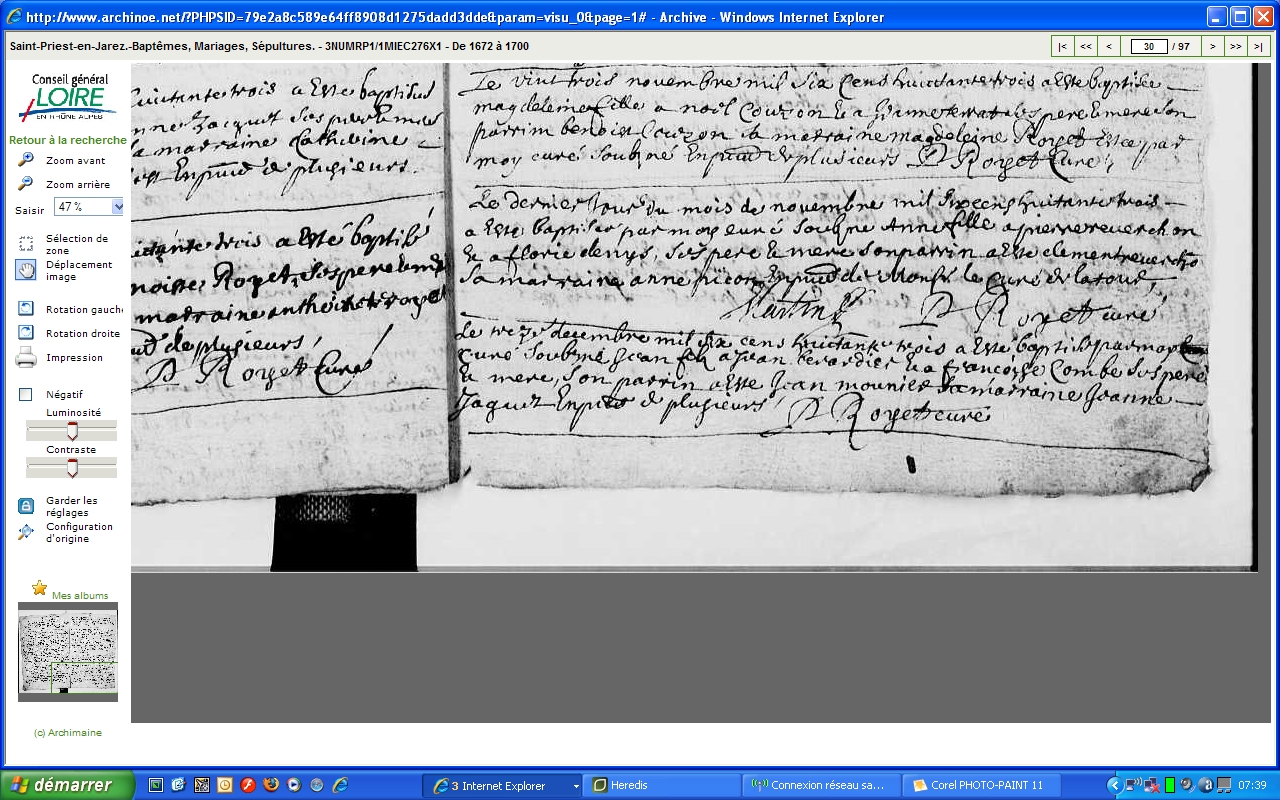 http://www.archinoe.net/?PHPSID=79e2a8c589e64ff8908d1275dadd3dde&param=visu_0&page=1# - Archive - Windows Internet Explorer
Saint-Priest-en-Jarez.-Baptêmes, Mariages, Sépultures. - 3NUMRP1/1MIEC276X1 - De 1672 à 1700
|< << < 30 / 97 > >> >|
Conseil général
LOIRE
EN RHÔNE ALPES
Retour à la recherche
Zoom avant
Zoom arrière
Saisir 47 %
Sélection de
zone
Déplacement
image
Rotation gauche
Rotation droite
Impression
Négatif
Luminosité
Contraste
Garder les
réglages
Configuration
d'origine
Mes albums
(c) Archimaine
huictante trois a Este baptisé
Jacquet ses pere & mere
sa marraine Catherine
de plusieurs
trois a Esté baptisé
Royet, ses pere & mere
marraine anthoinette royet
de plusieurs
Royet Curé
Le vint trois novembre mil six Cens huictante trois a Este baptisée
magdeleine fille a noel Couzon & a ses pere & mere son
parrin benoist Couzon sa marraine magdeleine Royet Este par
moy curé soubzné En de plusieurs Royet Curé
Le dernier Jour du mois de novembre mil six cens huictante trois
a Este baptisée par moy curé soubzné Anne fille a pierre reverchon
& a florie denys, ses pere & mere son parrin a Este clement reverchon
sa marraine anne picon En de Mons.r le Curé de latour,
Martin Royet curé
Le treze decembre mil six cens huictante trois a Esté baptisé par moy
curé soubzné Jean filz a Jean berardier & a francoise Combe ses pere
& mere, son parrin a Este Jean mounier sa marraine Jeanne
Jaquet En de plusieurs Royet curé
démarrer
3 Internet Explorer
Heredis
Connexion réseau sa...
Corel PHOTO-PAINT 11
07:39